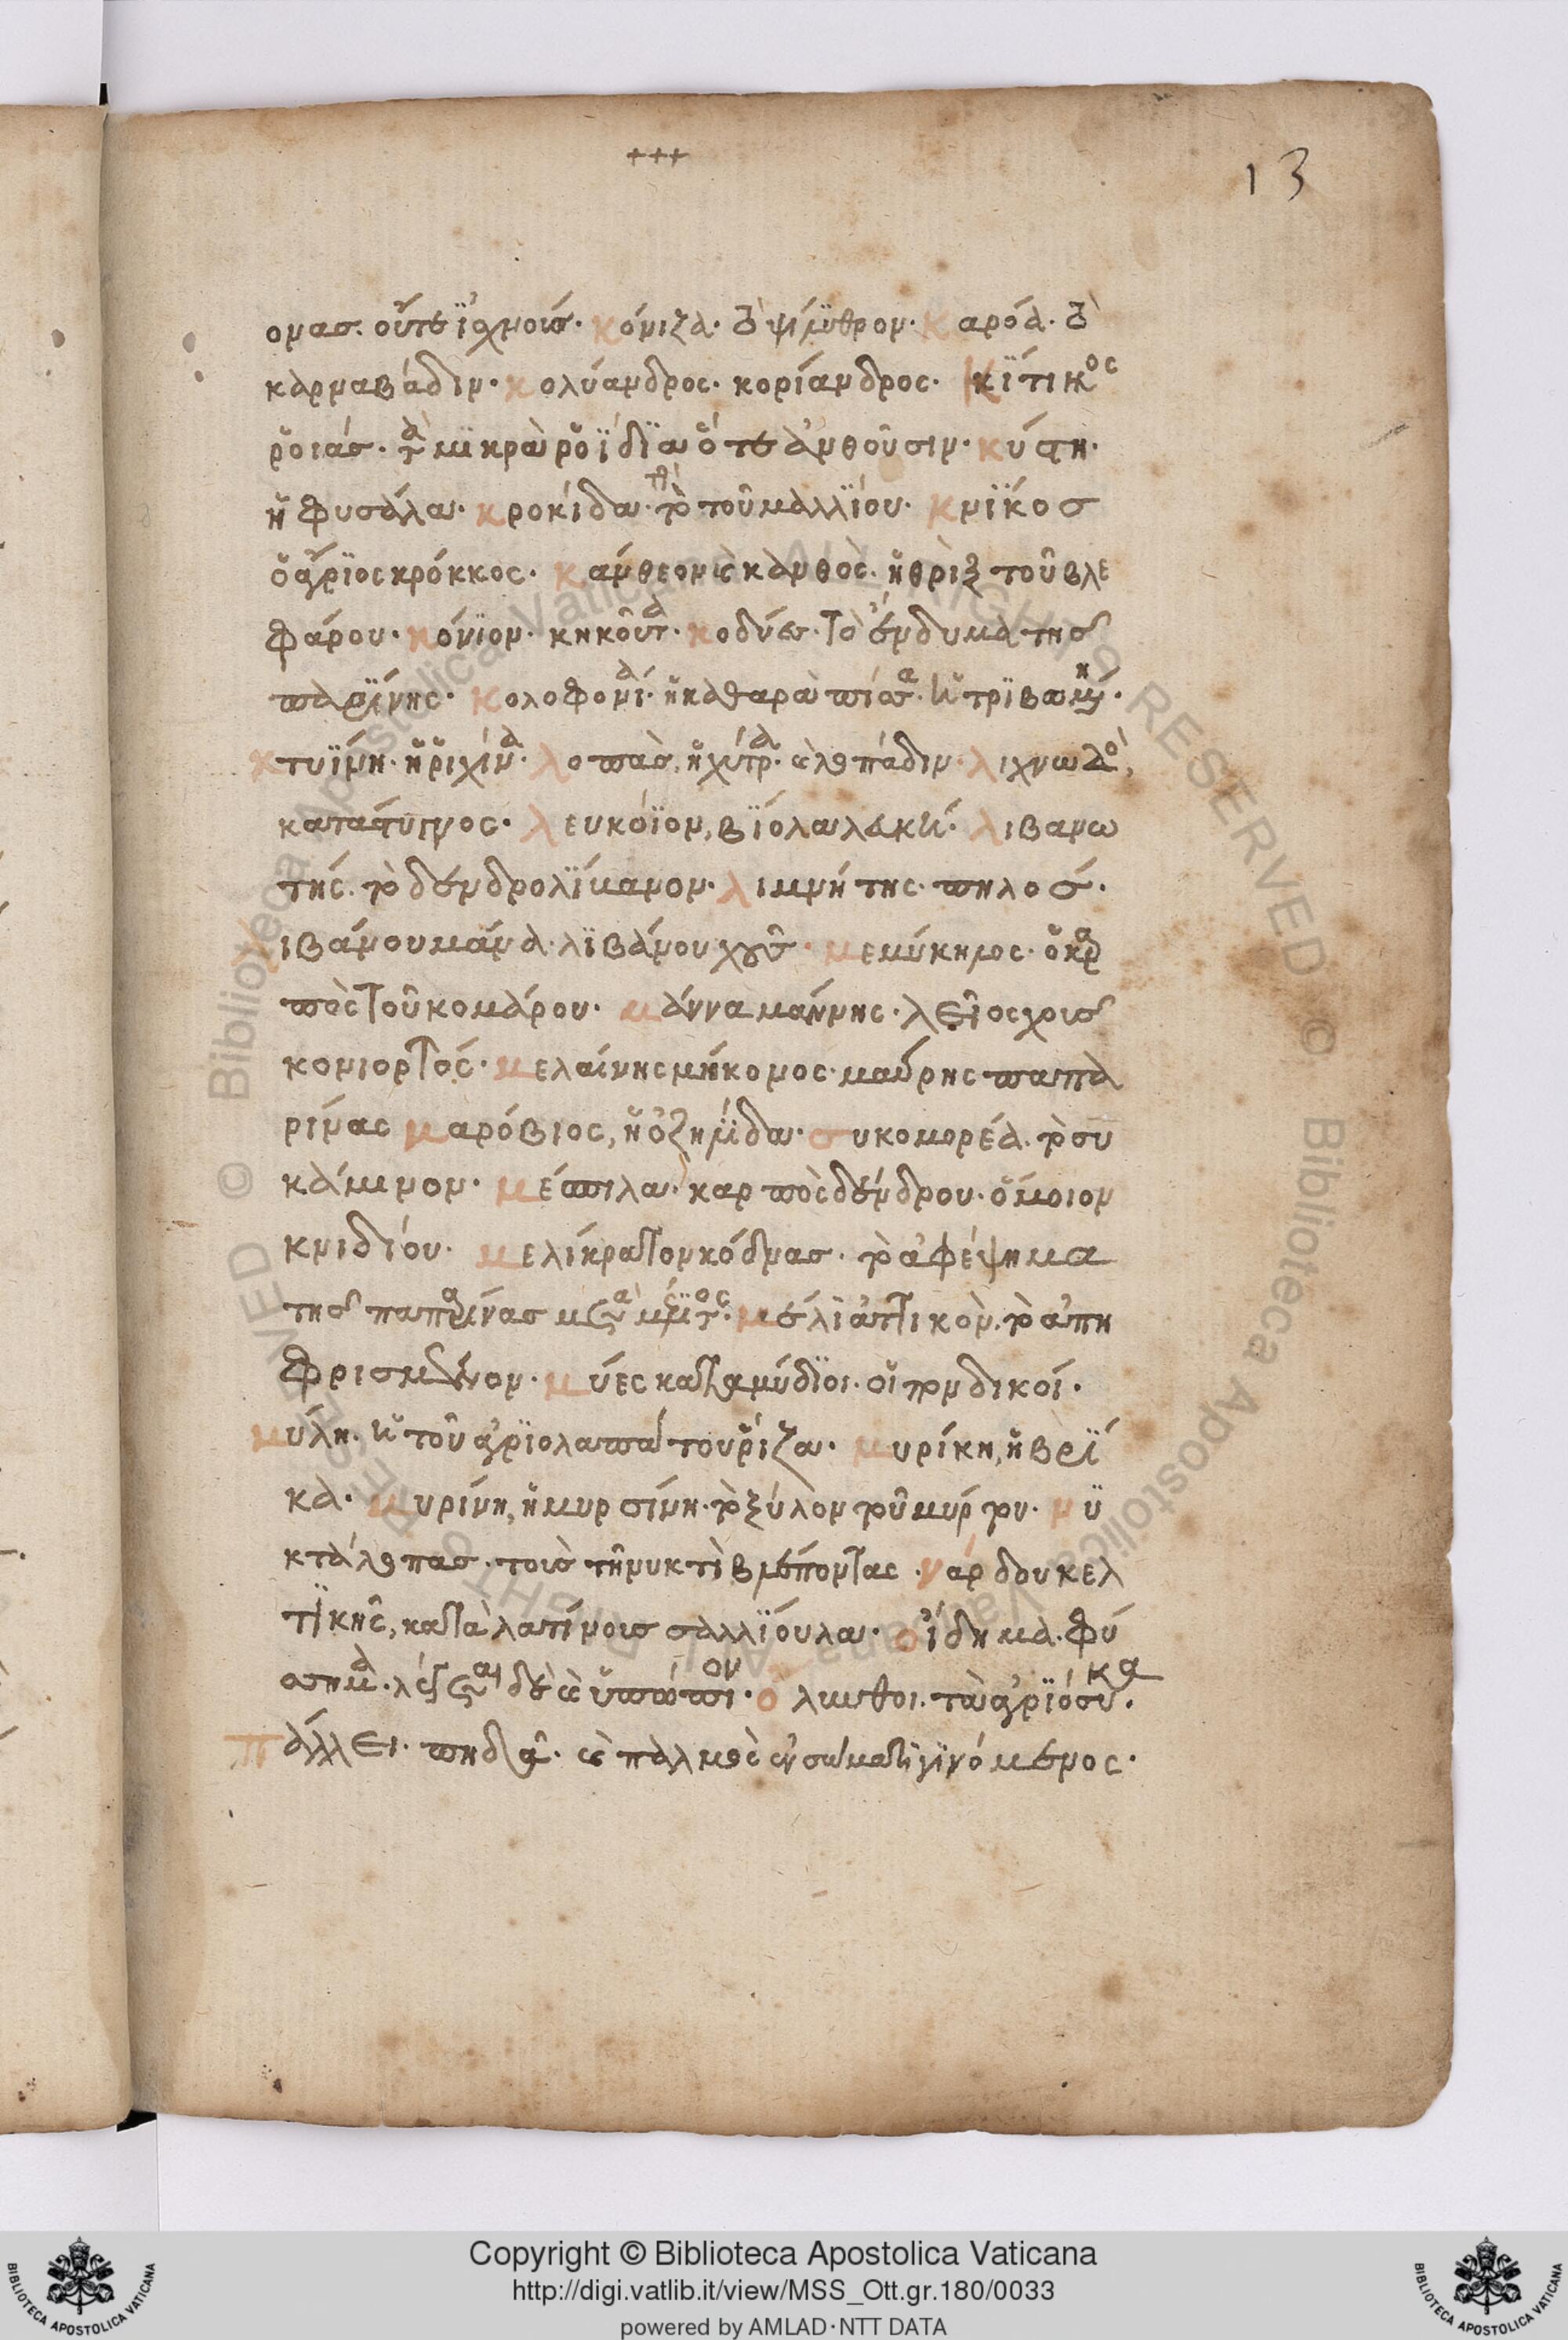 +++
13
ομασ. οὔτε ἴχνοισ. κόνιζα. τὸ ψιμύθρον. καρόα. τὸ
καρναβάδιν. κολύανδρος. κορίανδρος. κΐτινος
ῥοιάσ. τὰ μϊκρὰ ῥοΐδϊα ὅτε ἀνθοῦσιν. κύστη.
ἡ φυσάλα. κροκίδα. τὸ τοῦ μαλλΐου. κνϊκοσ
ὁ ἄγριος κρόκκος. κάνθεον καὶ κανθὸς. ἡ θρὶξ τοῦ βλε
φάρου. κόνϊον. κηκοῦτα. κοδύα. τὸ ἔνδυμα τησ
κολοφονία. ἡ καθαρὰ πίσσα.
ἡ ῥικίνα. λοπὰσ, ἡ χύτρα. καὶ λοπάδιν. λιχνω
λευκόϊον, βϊόλα λευκή. λιβανω
τής. τὸ δενδρολϊκανον. λιμνήτης. πηλοσ.
ιβάνου μάνα. λϊβάνου χοῦσ. μεμύκηλος. ὁ καρ
πὸς τοῦ κομάρου. μάννα μάννης. λεῖος χοισ
κονιορτός. μελαίνης μήκονος. μαύρης παπα
ρίνας μαρόβιος, ἡ ὀζημϊδα. συκομορέα. τὸ συ
κάμινον. μέσπιλα. καρπὸς δένδρου. ὅμοιον
κνιδίου. μελίκρατον κόδυασ. τὸ ἀφέψημα
τησ παπαρίνασ μετὰ μέλιτος. μέλι ἀττικὸν. τὸ ἀπη
φρισμένον. μύες καὶ μύδϊοι. οἱ ποντικοί.
μύλη. ἡ τοῦ ἀγρϊολαπάτου ῥίζα. μυρίκη, ἡ βρϊ
κα. μυρίνη, ἡ μυρσίνη. τὸ ξύλον τοῦ μύρτου. νϋ
κτάλοπασ. τοὺσ τὴν νύκτα βλέποντας. νάρδου κελ
τϊκῆς, κατὰ λατίνοισ σαλλϊούλα. οἴδημα. φύ
σημα. λέγεται δὲ καὶ ὑπώπιον. ὄλυνθοι. τὰ ἀγρϊόσυκα.
πάλλει. πηδᾶ. καὶ παλμὸς ἐν σώματι γϊνόμενος.
Copyright © Biblioteca Apostolica Vaticana
http://digi.vatlib.it/view/MSS_Ott.gr.180/0033
powered by AMLAD·NTT DATA
BIBLIOTECA APOSTOLICA VATICANA
BIBLIOTECA APOSTOLICA VATICANA